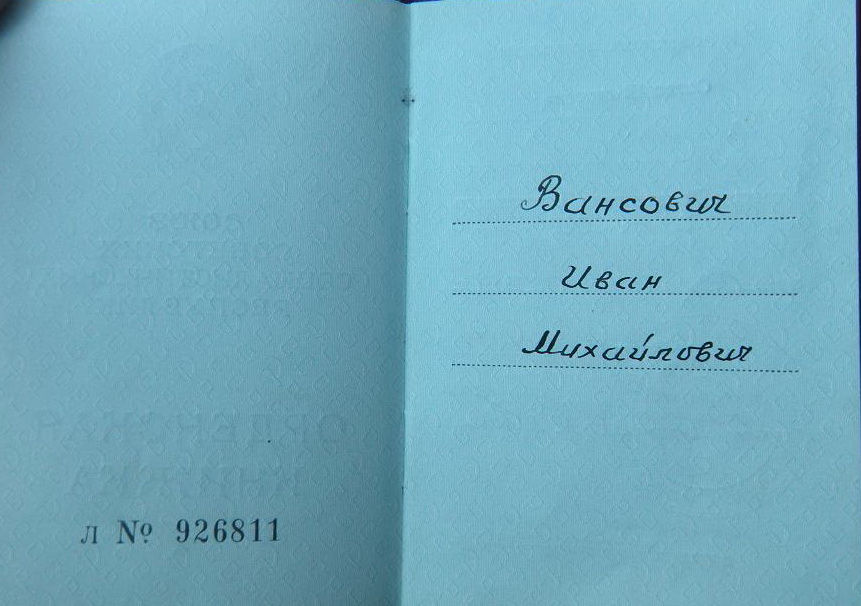 л № 926811
Вансович
Иван
Михайлович